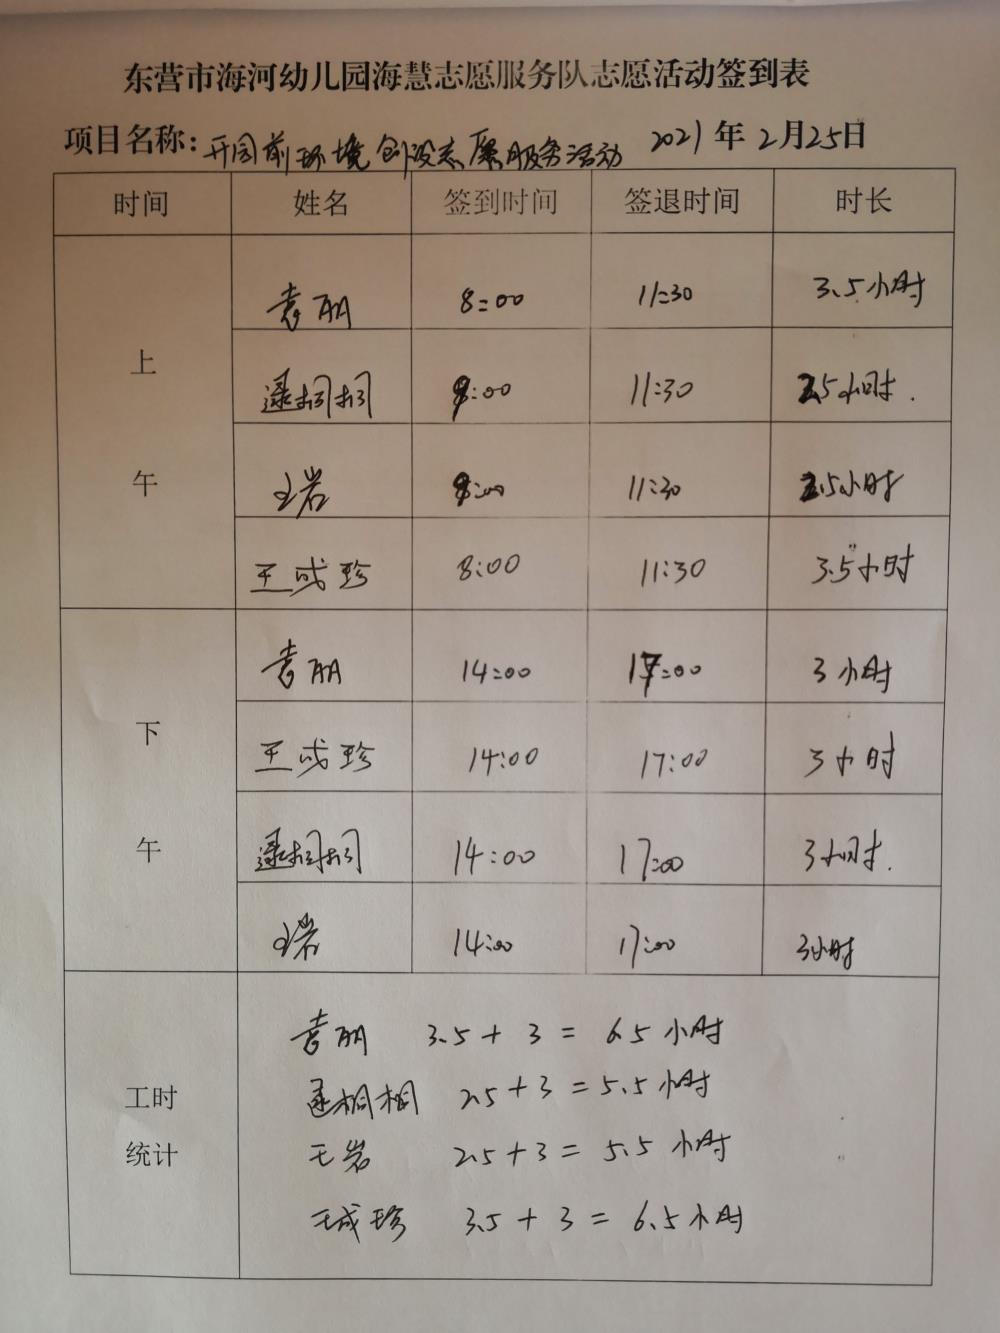 东营市海河幼儿园海慧志愿服务队志愿活动签到表
项目名称：开园前环境创设志愿服务活动 2021年2月25日
时间 姓名 签到时间 签退时间 时长
上午
袁丽 8:00 11:30 3.5小时
逯桐桐 9:00 11:30 2.5小时.
王岩 9:00 11:30 2.5小时
王成珍 8:00 11:30 3.5小时
下午
袁丽 14:00 17:00 3小时
王成珍 14:00 17:00 3小时
逯桐桐 14:00 17:00 3小时.
王岩 14:00 17:00 3小时
工时统计
袁丽 3.5+3=6.5小时
逯桐桐 2.5+3=5.5小时
王岩 2.5+3=5.5小时
王成珍 3.5+3=6.5小时